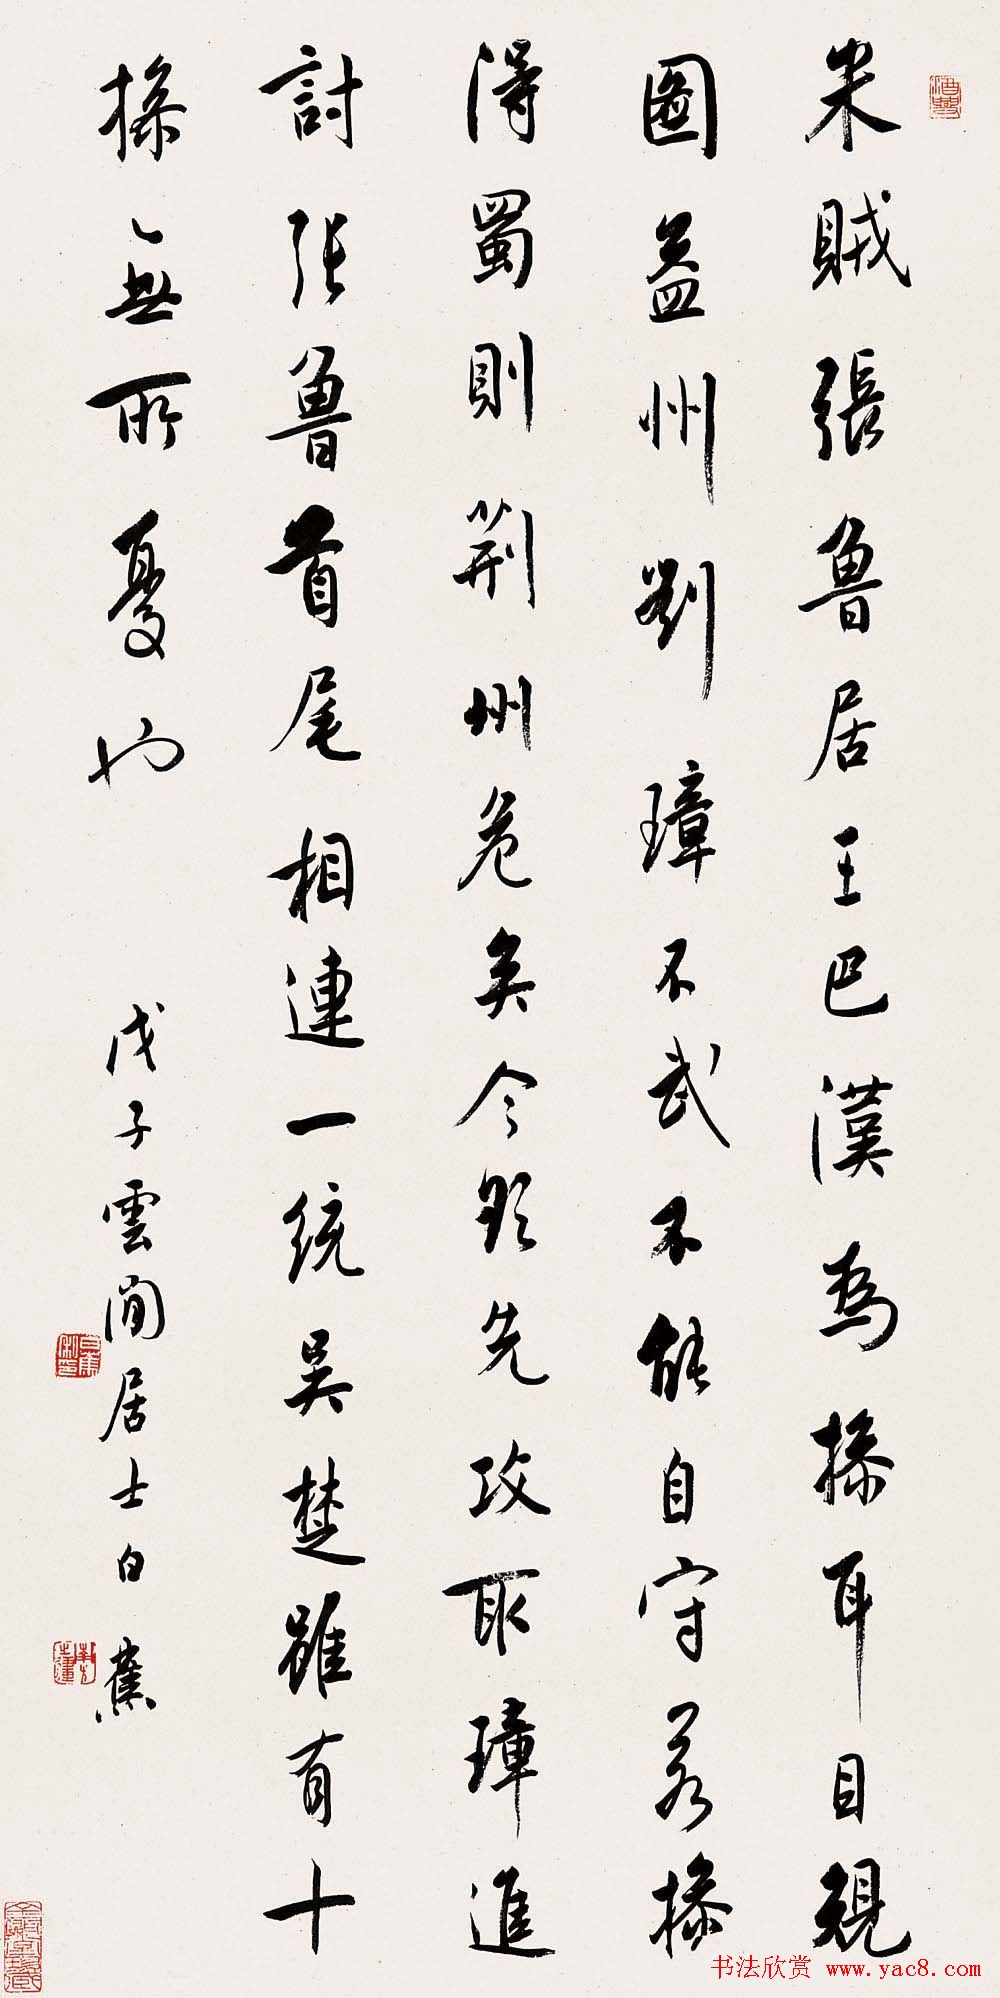 米賊張魯居王巴漢為操耳目規
圖益州劉璋不武不能自守若操
得蜀則荆州危矣今欲先攻取璋進
討張魯首尾相連一統吳楚雖有十
操無所憂也
戊子雲間居士白蕉
书法欣赏 www.yac8.com